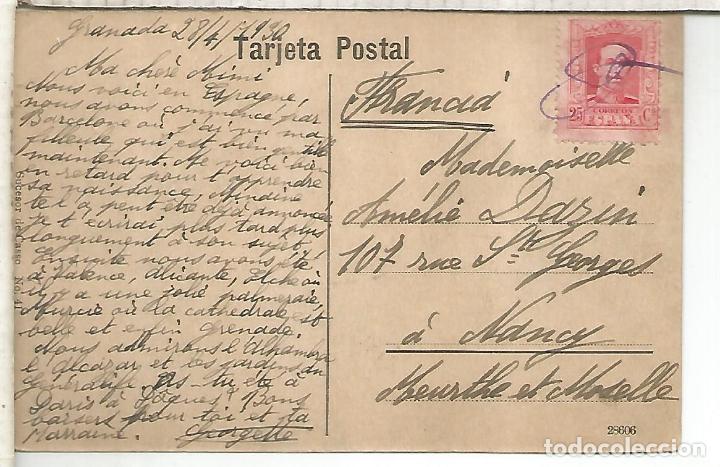 Granada 28/4/1930
Tarjeta Postal
Ma chère Mimi
Nous voici en Espagne,
nous avons commencé par
Barcelone où j'ai vu ma
filleule qui est bien gentille
maintenant. Me voici bien
en retard pour t'apprendre
sa naissance, Mindine
te l'a peut être déjà annoncée
Je t'écrirai plus tard plus
longuement à son sujet.
Ensuite nous avons été
à Valence, Alicante, Elche où
il y a une jolie palmeraie,
Murcie où la cathédrale est
belle et enfin Grenade.
Nous admirons l'Alhambra
l'Alcazar et les jardins du
Généralife. As-tu été à
Paris à Pâques? Bons
baisers pour toi et ta
Marraine. Georgette
Sucesor de Casso No. 41
25 CORREOS Cs
ESPAÑA
Francia
Mademoiselle
Amélie Dazin
107 rue St Georges
à Nancy
Meurthe et Moselle
28606
todocoleccion.net